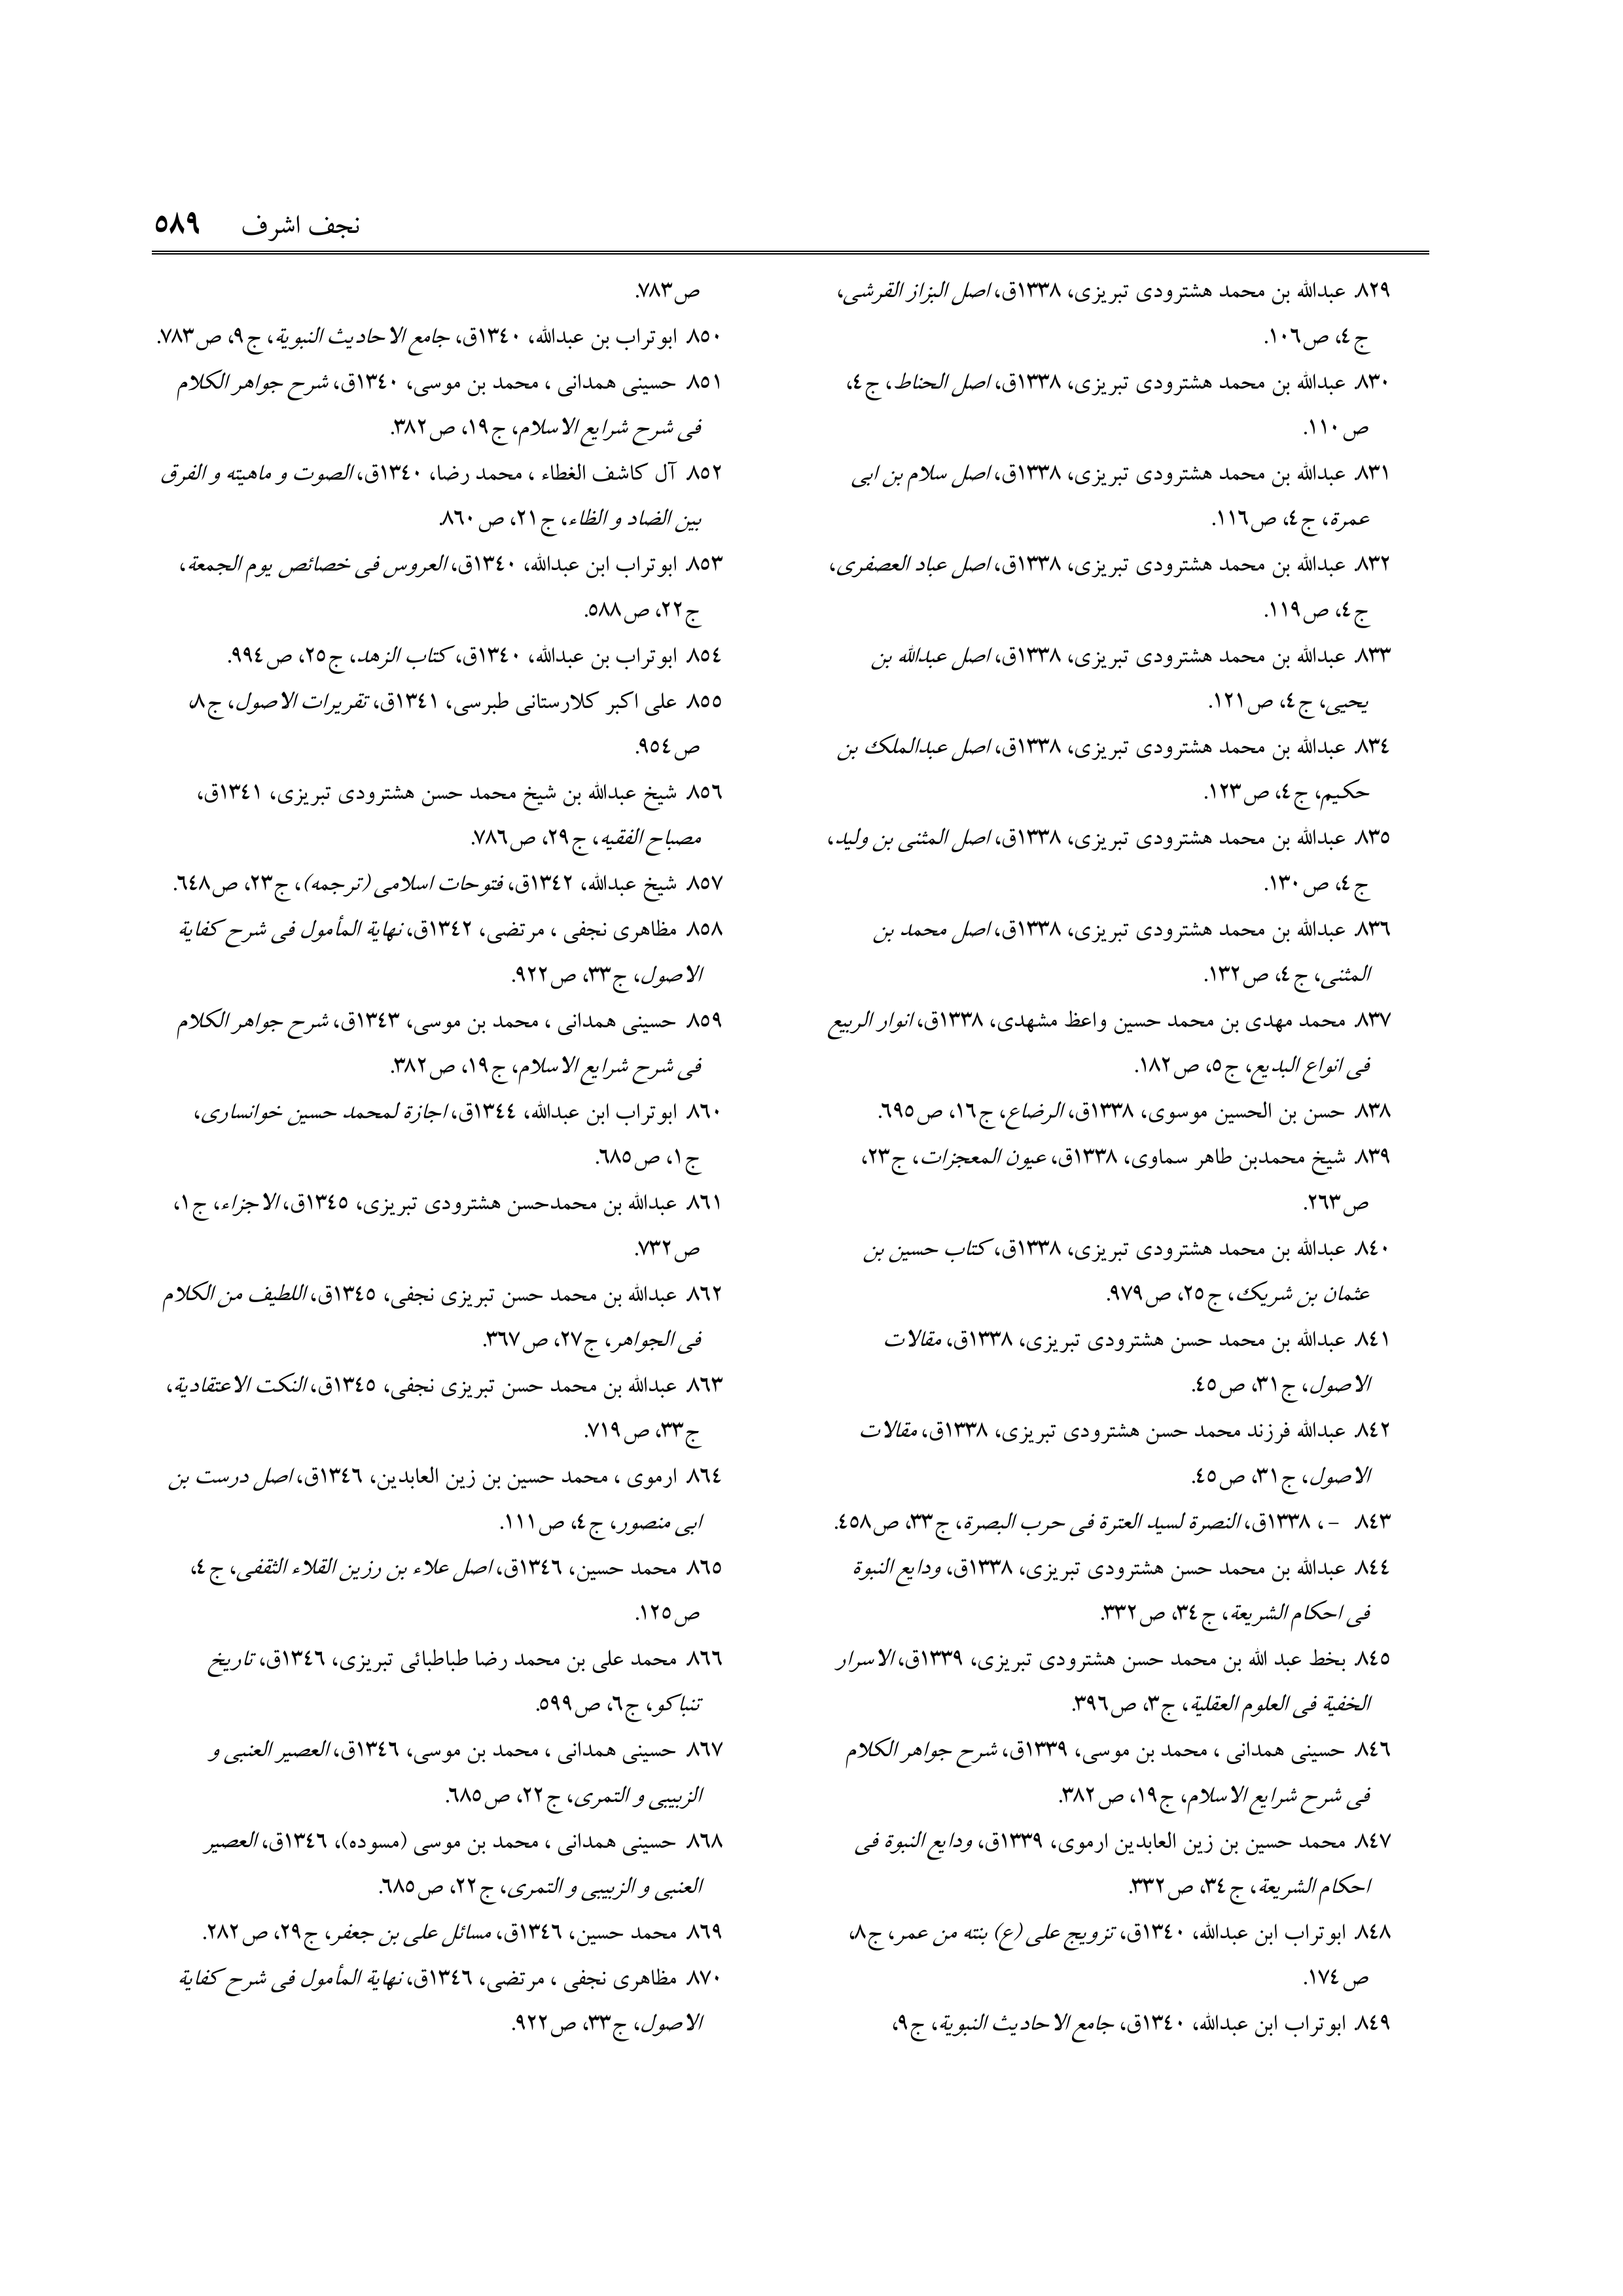 نجف اشرف ٥٨٩
٨٢٩. عبدالله بن محمد هشترودی تبریزی، ١٣٣٨ق، اصل البزاز القرشی،
ج٤، ص١٠٦.
٨٣٠. عبدالله بن محمد هشترودی تبریزی، ١٣٣٨ق، اصل الحناط، ج٤،
ص١١٠.
٨٣١. عبدالله بن محمد هشترودی تبریزی، ١٣٣٨ق، اصل سلام بن ابی
عمرة، ج٤، ص١١٦.
٨٣٢. عبدالله بن محمد هشترودی تبریزی، ١٣٣٨ق، اصل عباد العصفری،
ج٤، ص١١٩.
٨٣٣. عبدالله بن محمد هشترودی تبریزی، ١٣٣٨ق، اصل عبدالله بن
یحیی، ج٤، ص١٢١.
٨٣٤. عبدالله بن محمد هشترودی تبریزی، ١٣٣٨ق، اصل عبدالملک بن
حکیم، ج٤، ص١٢٣.
٨٣٥. عبدالله بن محمد هشترودی تبریزی، ١٣٣٨ق، اصل المثنی بن ولید،
ج٤، ص١٣٠.
٨٣٦. عبدالله بن محمد هشترودی تبریزی، ١٣٣٨ق، اصل محمد بن
المثنی، ج٤، ص١٣٢.
٨٣٧. محمد مهدی بن محمد حسین واعظ مشهدی، ١٣٣٨ق، انوار الربیع
فی انواع البدیع، ج٥، ص١٨٢.
٨٣٨. حسن بن الحسین موسوی، ١٣٣٨ق، الرضاع، ج١٦، ص٦٩٥.
٨٣٩. شیخ محمدبن طاهر سماوی، ١٣٣٨ق، عیون المعجزات، ج٢٣،
ص٢٦٣.
٨٤٠. عبدالله بن محمد هشترودی تبریزی، ١٣٣٨ق، کتاب حسین بن
عثمان بن شریک، ج٢٥، ص٩٧٩.
٨٤١. عبدالله بن محمد حسن هشترودی تبریزی، ١٣٣٨ق، مقالات
الاصول، ج٣١، ص٤٥.
٨٤٢. عبدالله فرزند محمد حسن هشترودی تبریزی، ١٣٣٨ق، مقالات
الاصول، ج٣١، ص٤٥.
٨٤٣. -، ١٣٣٨ق، النصرة لسید العترة فی حرب البصرة، ج٣٣، ص٤٥٨.
٨٤٤. عبدالله بن محمد حسن هشترودی تبریزی، ١٣٣٨ق، ودایع النبوة
فی احکام الشریعة، ج٣٤، ص٣٣٢.
٨٤٥. بخط عبد الله بن محمد حسن هشترودی تبریزی، ١٣٣٩ق، الاسرار
الخفیة فی العلوم العقلیة، ج٣، ص٣٩٦.
٨٤٦. حسینی همدانی ، محمد بن موسی، ١٣٣٩ق، شرح جواهر الکلام
فی شرح شرایع الاسلام، ج١٩، ص٣٨٢.
٨٤٧. محمد حسین بن زین العابدین ارموی، ١٣٣٩ق، ودایع النبوة فی
احکام الشریعة، ج٣٤، ص٣٣٢.
٨٤٨. ابوتراب ابن عبدالله، ١٣٤٠ق، تزویج علی (ع) بنته من عمر، ج٨،
ص١٧٤.
٨٤٩. ابوتراب ابن عبدالله، ١٣٤٠ق، جامع الاحادیث النبویة، ج٩،
ص٧٨٣.
٨٥٠. ابوتراب بن عبدالله، ١٣٤٠ق، جامع الاحادیث النبویة، ج٩، ص٧٨٣.
٨٥١. حسینی همدانی ، محمد بن موسی، ١٣٤٠ق، شرح جواهر الکلام
فی شرح شرایع الاسلام، ج١٩، ص٣٨٢.
٨٥٢. آل کاشف الغطاء ، محمد رضا، ١٣٤٠ق، الصوت و ماهیته و الفرق
بین الضاد و الظاء، ج٢١، ص٨٦٠.
٨٥٣. ابوتراب ابن عبدالله، ١٣٤٠ق، العروس فی خصائص یوم الجمعة،
ج٢٢، ص٥٨٨.
٨٥٤. ابوتراب بن عبدالله، ١٣٤٠ق، کتاب الزهد، ج٢٥، ص٩٩٤.
٨٥٥. علی اکبر کلارستانی طبرسی، ١٣٤١ق، تقریرات الاصول، ج٨،
ص٩٥٤.
٨٥٦. شیخ عبدالله بن شیخ محمد حسن هشترودی تبریزی، ١٣٤١ق،
مصباح الفقیه، ج٢٩، ص٧٨٦.
٨٥٧. شیخ عبدالله، ١٣٤٢ق، فتوحات اسلامی (ترجمه)، ج٢٣، ص٦٤٨.
٨٥٨. مظاهری نجفی ، مرتضی، ١٣٤٢ق، نهایة المأمول فی شرح کفایة
الاصول، ج٣٣، ص٩٢٢.
٨٥٩. حسینی همدانی ، محمد بن موسی، ١٣٤٣ق، شرح جواهر الکلام
فی شرح شرایع الاسلام، ج١٩، ص٣٨٢.
٨٦٠. ابوتراب ابن عبدالله، ١٣٤٤ق، اجازة لمحمد حسین خوانساری،
ج١، ص٦٨٥.
٨٦١. عبدالله بن محمدحسن هشترودی تبریزی، ١٣٤٥ق، الاجزاء، ج١،
ص٧٣٢.
٨٦٢. عبدالله بن محمد حسن تبریزی نجفی، ١٣٤٥ق، اللطیف من الکلام
فی الجواهر، ج٢٧، ص٣٦٧.
٨٦٣. عبدالله بن محمد حسن تبریزی نجفی، ١٣٤٥ق، النکت الاعتقادیة،
ج٣٣، ص٧١٩.
٨٦٤. ارموی ، محمد حسین بن زین العابدین، ١٣٤٦ق، اصل درست بن
ابی منصور، ج٤، ص١١١.
٨٦٥. محمد حسین، ١٣٤٦ق، اصل علاء بن رزین القلاء الثقفی، ج٤،
ص١٢٥.
٨٦٦. محمد علی بن محمد رضا طباطبائی تبریزی، ١٣٤٦ق، تاریخ
تنباکو، ج٦، ص٥٩٩.
٨٦٧. حسینی همدانی ، محمد بن موسی، ١٣٤٦ق، العصیر العنبی و
الزبیبی و التمری، ج٢٢، ص٦٨٥.
٨٦٨. حسینی همدانی ، محمد بن موسی (مسوده)، ١٣٤٦ق، العصیر
العنبی و الزبیبی و التمری، ج٢٢، ص٦٨٥.
٨٦٩. محمد حسین، ١٣٤٦ق، مسائل علی بن جعفر، ج٢٩، ص٢٨٢.
٨٧٠. مظاهری نجفی ، مرتضی، ١٣٤٦ق، نهایة المأمول فی شرح کفایة
الاصول، ج٣٣، ص٩٢٢.